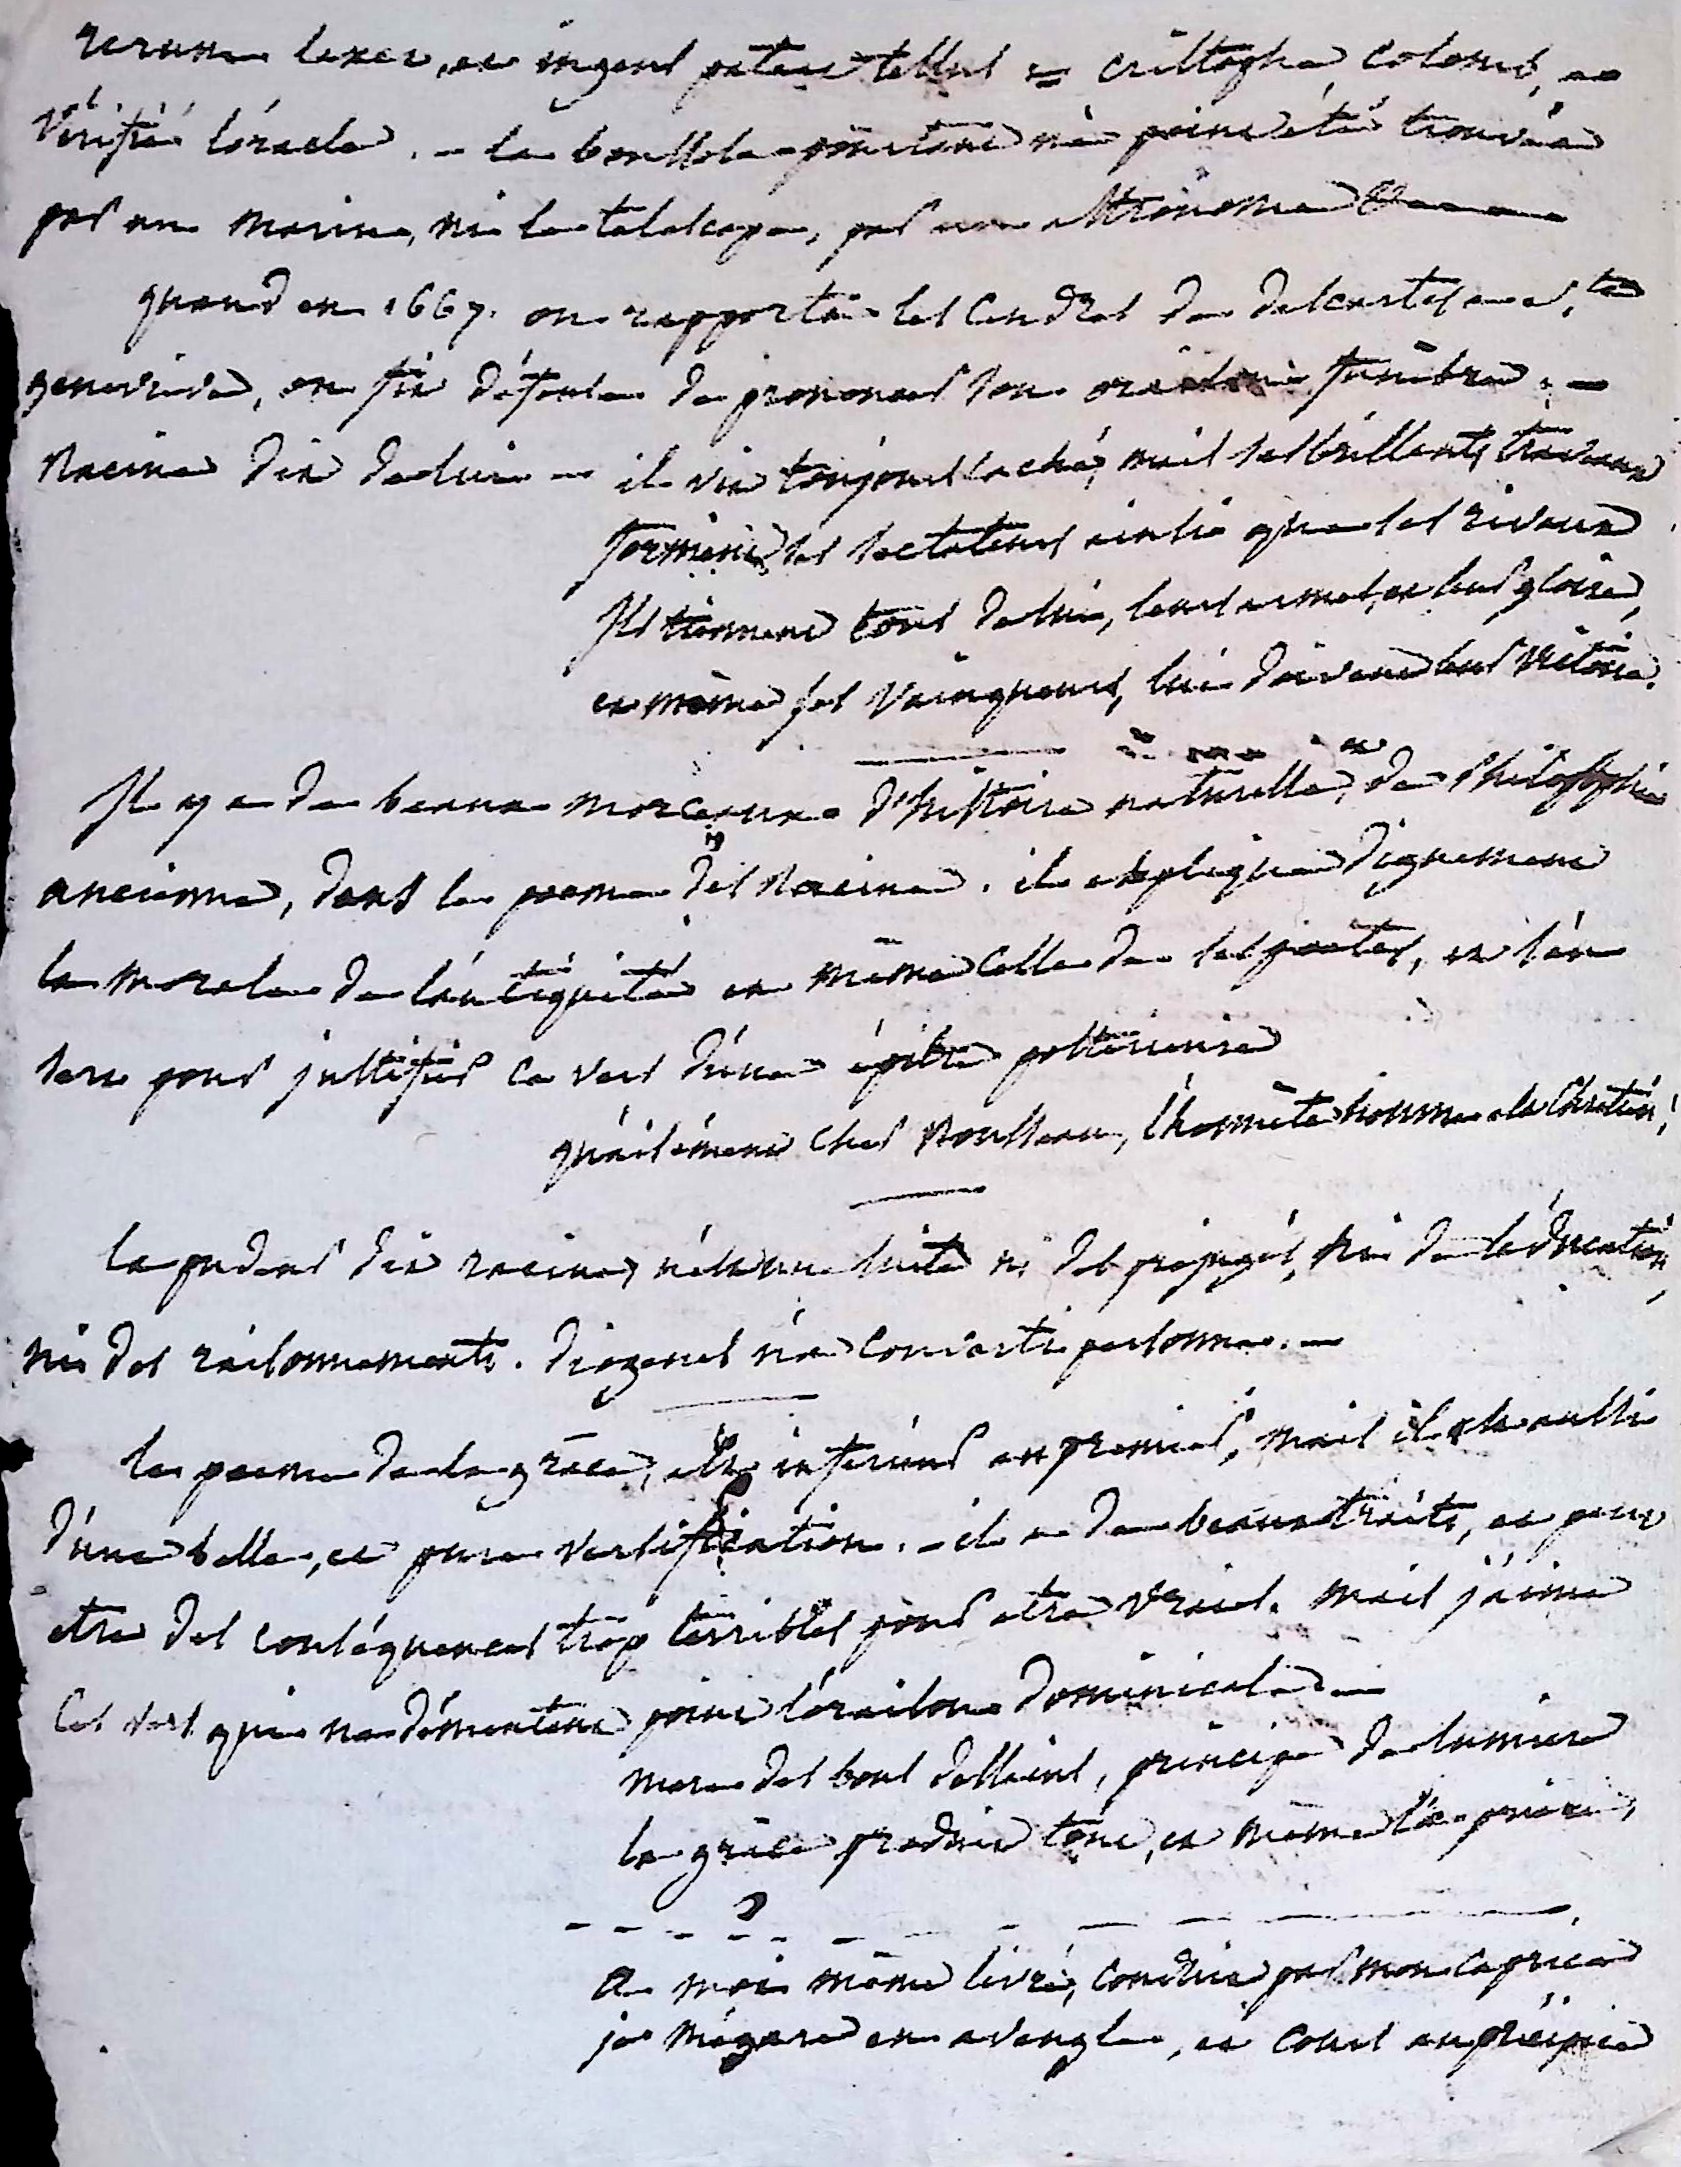 rerum laxet, et ingens pateat tellus = cristophe colomb, a
vérifié l'oracle. - la boussole pourtant n'a point été trouvée
par un marin, ni le telescope, par un astronome
quand en 1667. on rapporta les cendres de descartes a ste
genevieve, on fit défense de prononcer son oraison funèbre. -
Racine dit de lui - il vit toujours caché, mais ses brillants travaux
forment ses sectateurs ainsi que ses rivaux
Ils tiennent tous de lui, leurs armes, et leur gloire,
et même ses vainqueurs, lui doivent leur victoire.
Il y a de beaux morceaux d'histoire naturelle, et de Philosophie
ancienne, dans le poeme de Racine. il explique dignement
la morale de l'antiquité et même celle de ses poetes, et l'on
sent pour justifier ce vers d'une épitre postérieure
qu'ailément chez Rousseau, l'honnête homme est Chrétien,
la pudeur dit racine, n'est une suite ni des préjugés, ni de l'éducation,
ni des raisonnements. Diogenes n'a converti personne. -
le poeme de la grâce, est inférieur au premier, mais il est aussi
d'une belle, et pure versification. - il a de beaux traits, et peut
etre des conséquences trop terribles pour etre vraies. mais j'aime
ces vers qui ne démentent point l'oraison dominicale -
mere des bons desseins, principe de lumiere
la grâce produit tout, et même la priere,
A moi même livré, conduit par mon caprice
je m'égare en aveugle, et cours au précipice